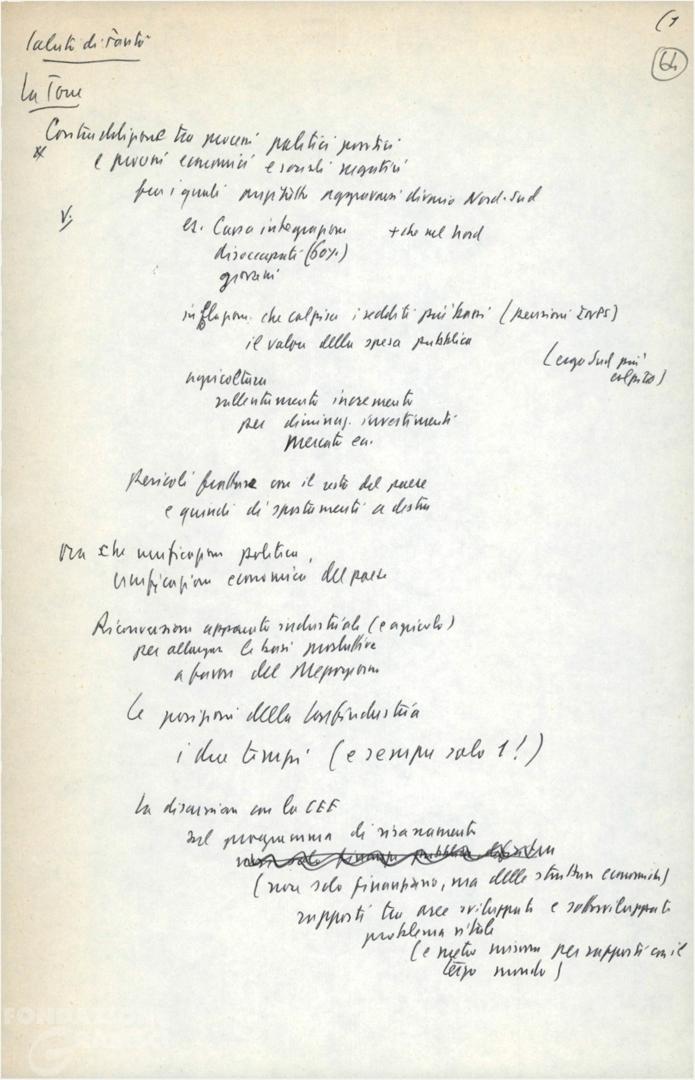 (1
64
Saluti di
La Torre
Contraddizione tra processi politici positivi
* e processi economici e sociali negativi
per i quali aggravarsi divario Nord-Sud
V.
es. Cassa integrazione + che nel Nord
disoccupati (60%)
giovani
inflazione che colpisce i redditi più bassi (pensioni INPS)
il valore della spesa pubblica
(ergo Sud più
colpito)
agricoltura
rallentamento incremento
per diminuz. investimenti
mercato
Pericoli frattura con il resto del paese
e quindi di spostamenti a destra
che unificazione politica,
unificazione economica del paese
Riconversione apparato industriale (e agricolo)
per allargare le basi produttive
a favore del Mezzogiorno
Le posizioni della Confindustria
i due tempi (e sempre solo 1!)
La discussione con la CEE
sul programma di risanamento
(non solo finanziario, ma delle strutture economiche)
rapporti tra aree sviluppate e sottosviluppate
problema vitale
(e metro misura per rapporti con il
terzo mondo)
FONDAZIONE
GRAMSCI